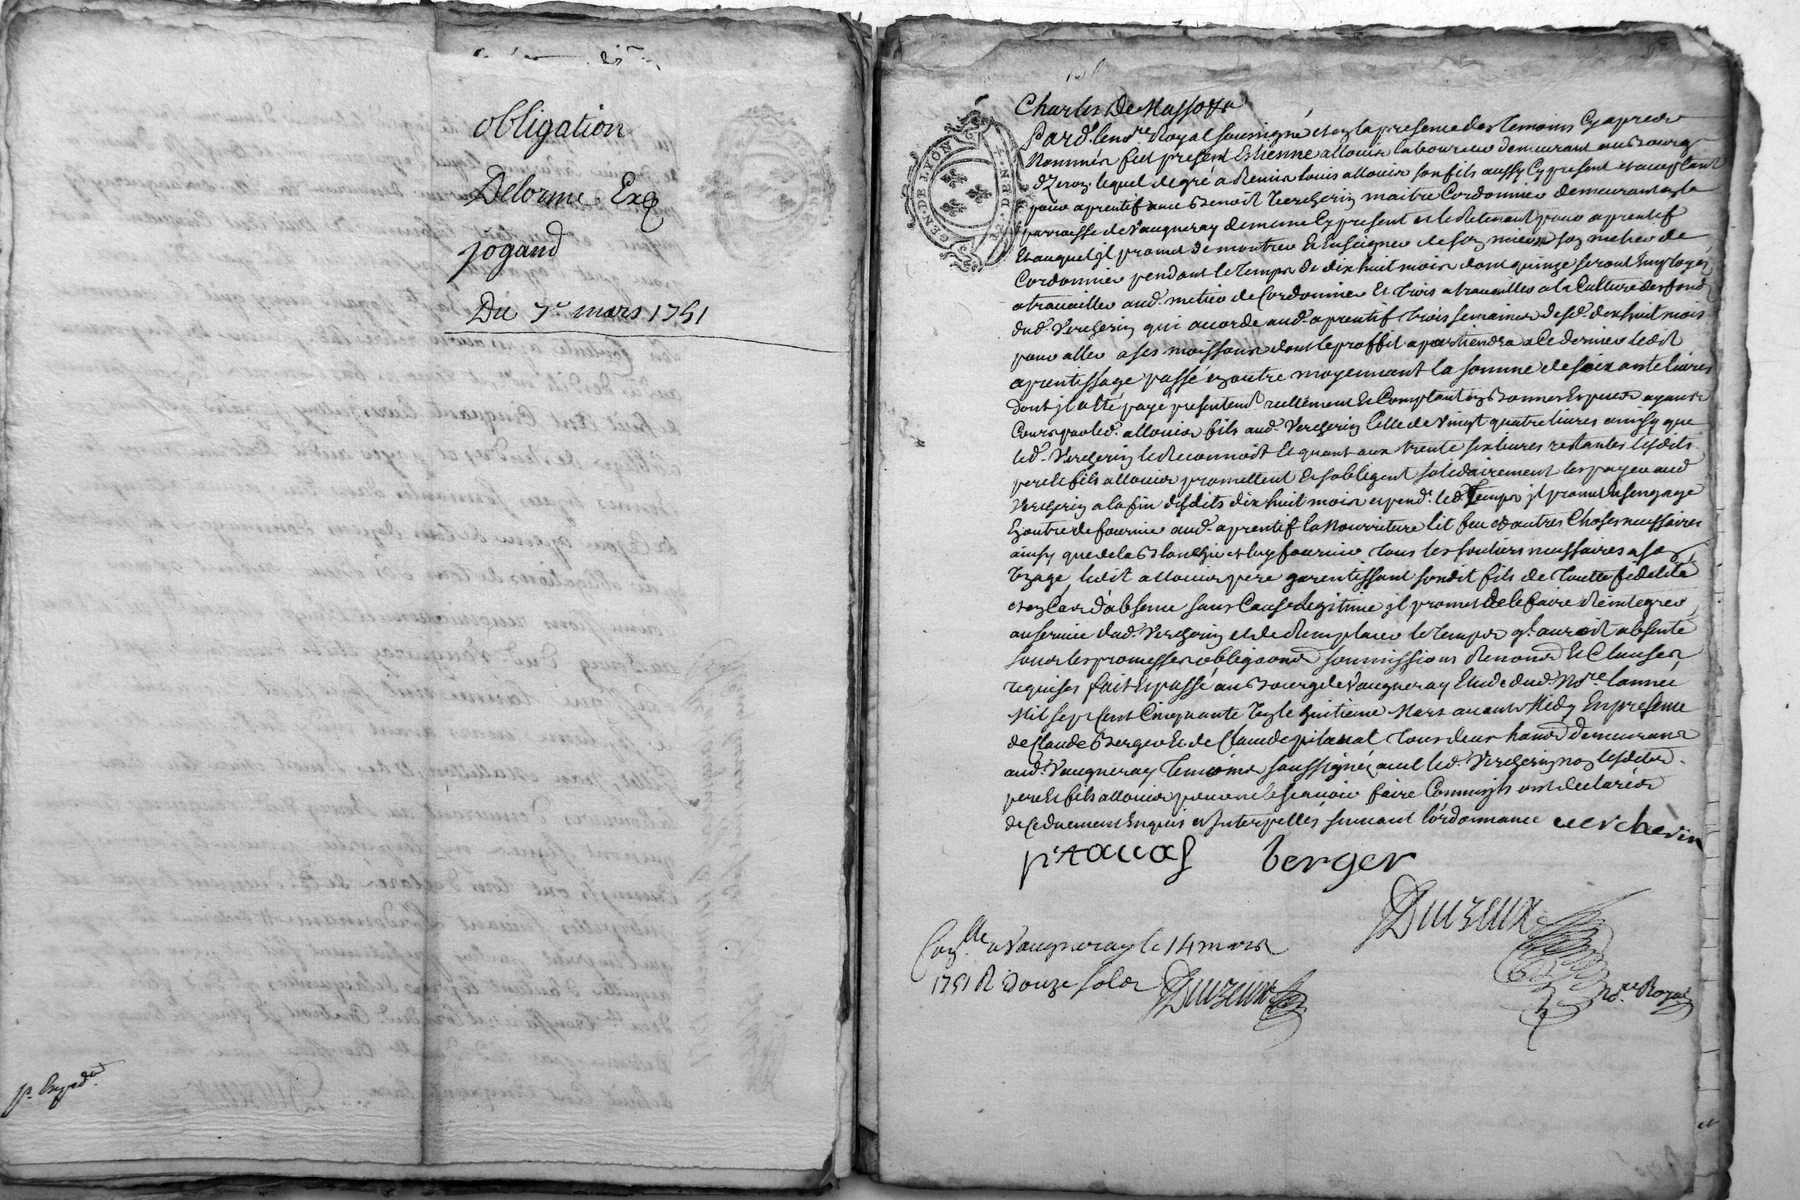 obligation
Delorme Exp
jogand
Du 7e mars 1751
p. Expedié
GEN DE LYON
2 S. D EN
Charles De Masso &a
Pard. le no.re Royal soussigné et en la presence des temoins cy apres
Nommés fut present Estienne allouis laboureur demeurant au Bourg
d'Izeron lequel de gré a remis louis allouis son fils aussy cy present et acceptant
pour aprentif avec Benoit Vercherin maitre Cordonnier demeurant en la
parroisse de Vaugneray de meme cy present et le Retenant pour aprentif
Et auquel jl promet de montrer Et Enseigner de son mieux son metier de
Cordonnier pendant le temps de dix huit mois dont quinze seront Employés
a travailler aud. metier de Cordonnier Et trois a travailler a la Culture des fonds
dud. Vercherin qui accorde aud. aprentif trois semaines desd. dix huit mois
pour aller a ses moissons dont le proffit apartiendra a Ce dernier ledit
aprentissage passé en outre moyennant la somme de soixante livres
dont jl a été payé presentem.t reellement Et Comptant en Bonnes Especes ayants
Cours par led. allouis fils aud. Vercherin Celle de Vingt quatre livres ainsy que
led. Vercherin le Reconnoit Et quant aux trente six livres restantes lesdits
pere Et fils allouis promettent Et s'obligent solidairement les payer aud
Vercherin a la fin desdits dix huit mois et pend.t led. Temps jl promet et s'engage
En outre de fournir aud. aprentif la Nourriture lit feu et autres Choses necessaires
ainsy que de le Blanchir et luy fournir tous les souliers necessaires a son
Uzage, ledit allouis pere garentissant sondit fils de toutte fidelité
et en Cas d'absence sans Cause legitime jl promet de le faire Reintegrer
au service dud. Vercherin et de Remplacer le temps q'l auroit absenté
sous les promesses obligaons soumissions Renons Et Clauses
requises fait Et passé au Bourg de Vaugneray Etude dud. No.re lannée
Mil sept Cent Cinquante Un le huitieme Mars avant Midy En presence
de Claude Berger Et de Claude pitaval tous deux hants demeurans
aud. Vaugneray temoins soussignés avec led. Vercherin non lesdits
pere Et fils allouis pour ne le sçavoir faire Comme jls ont declarés
de Ce duement Enquis et Interpellés suivant l'ordonnance vercherin
pitaval berger
Duizeux
No.re Royal
Con.lle a Vaugneray le 14 mars
1751 R Douze sols
Duizeux